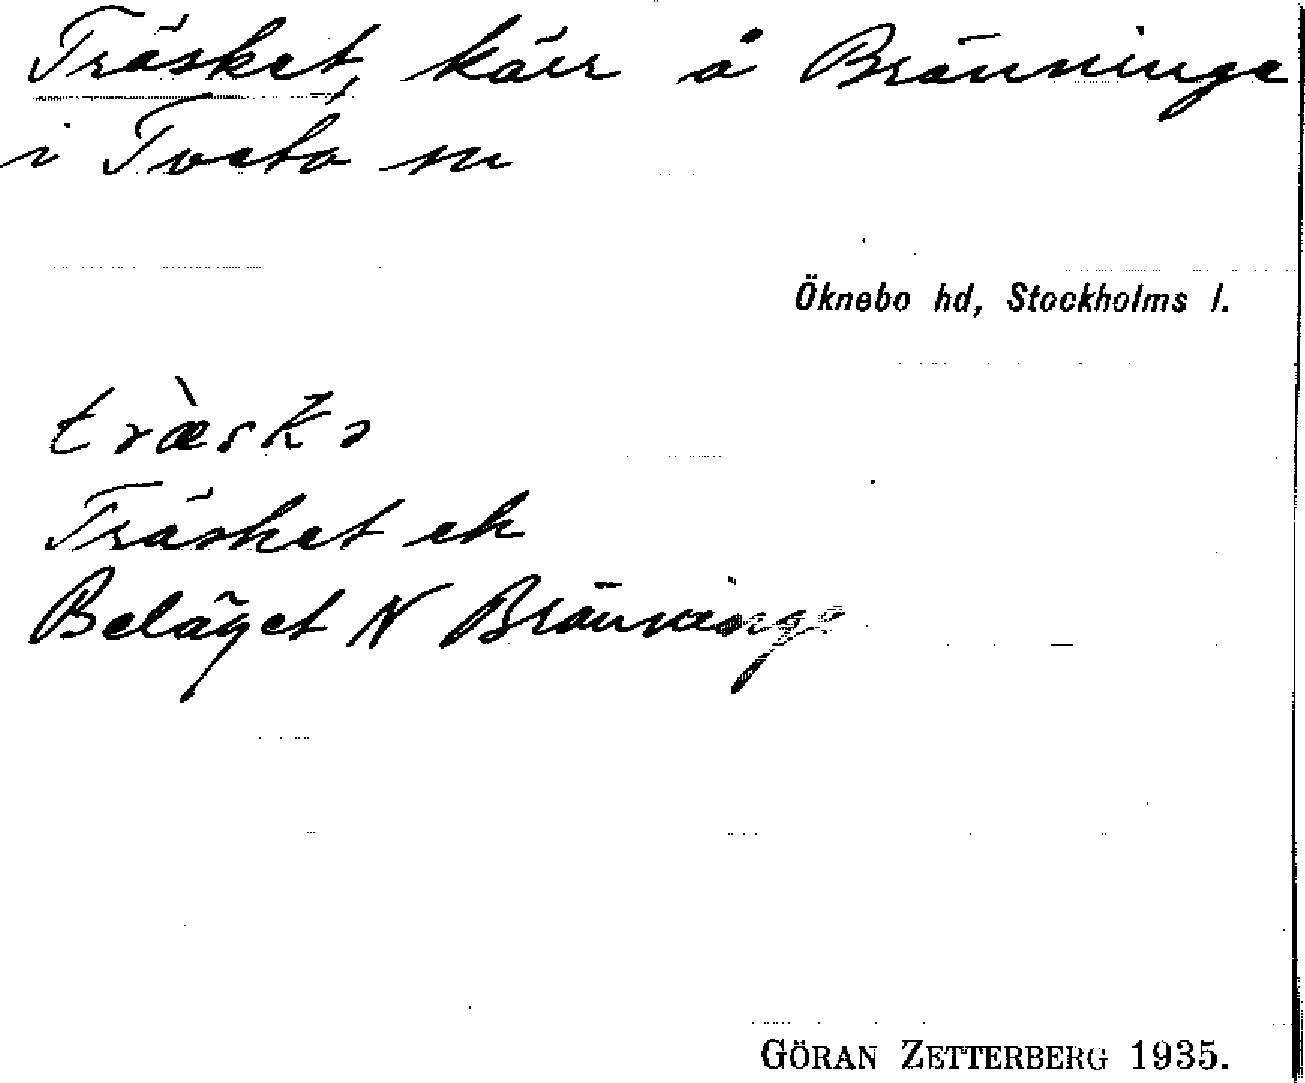 Träsket, kärr å Bränninge
i Tveta sn
Öknebo hd, Stockholms l.
træ̀skə
Träsket ek
Beläget N Bränninge
GÖRAN ZETTERBERG 1935.